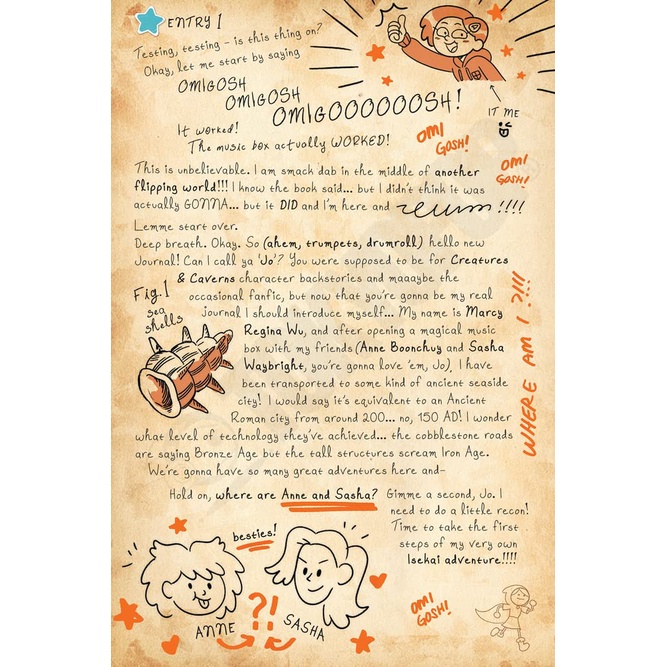 ENTRY 1
Testing, testing - is this thing on?
Okay, let me start by saying
OMIGOSH
OMIGOSH
OMIGOOOOOOSH!
IT ME
It worked!
The music box actually WORKED!
OMI
GOSH!
OMI
GOSH!
This is unbelievable. I am smack dab in the middle of another
flipping world!!! I know the book said... but I didn't think it was
actually GONNA... but it DID and I'm here and !!!!
Lemme start over.
Deep breath. Okay. So (ahem, trumpets, drumroll) hello new
Journal! Can I call ya 'Jo'? You were supposed to be for Creatures
& Caverns character backstories and maaaybe the
occasional fanfic, but now that you're gonna be my real
journal I should introduce myself... My name is Marcy
Regina Wu, and after opening a magical music
box with my friends (Anne Boonchuy and Sasha
Waybright, you're gonna love 'em, Jo), I have
been transported to some kind of ancient seaside
city! I would say it's equivalent to an Ancient
Roman city from around 200... no, 150 AD! I wonder
what level of technology they've achieved... the cobblestone roads
are saying Bronze Age but the tall structures scream Iron Age.
We're gonna have so many great adventures here and-
Fig.1
sea
shells
WHERE AM I ?!!!
Hold on, where are Anne and Sasha? Gimme a second, Jo. I
need to do a little recon!
Time to take the first
steps of my very own
Isekai adventure!!!!
besties!
?!
ANNE
SASHA
OMI
GOSH!